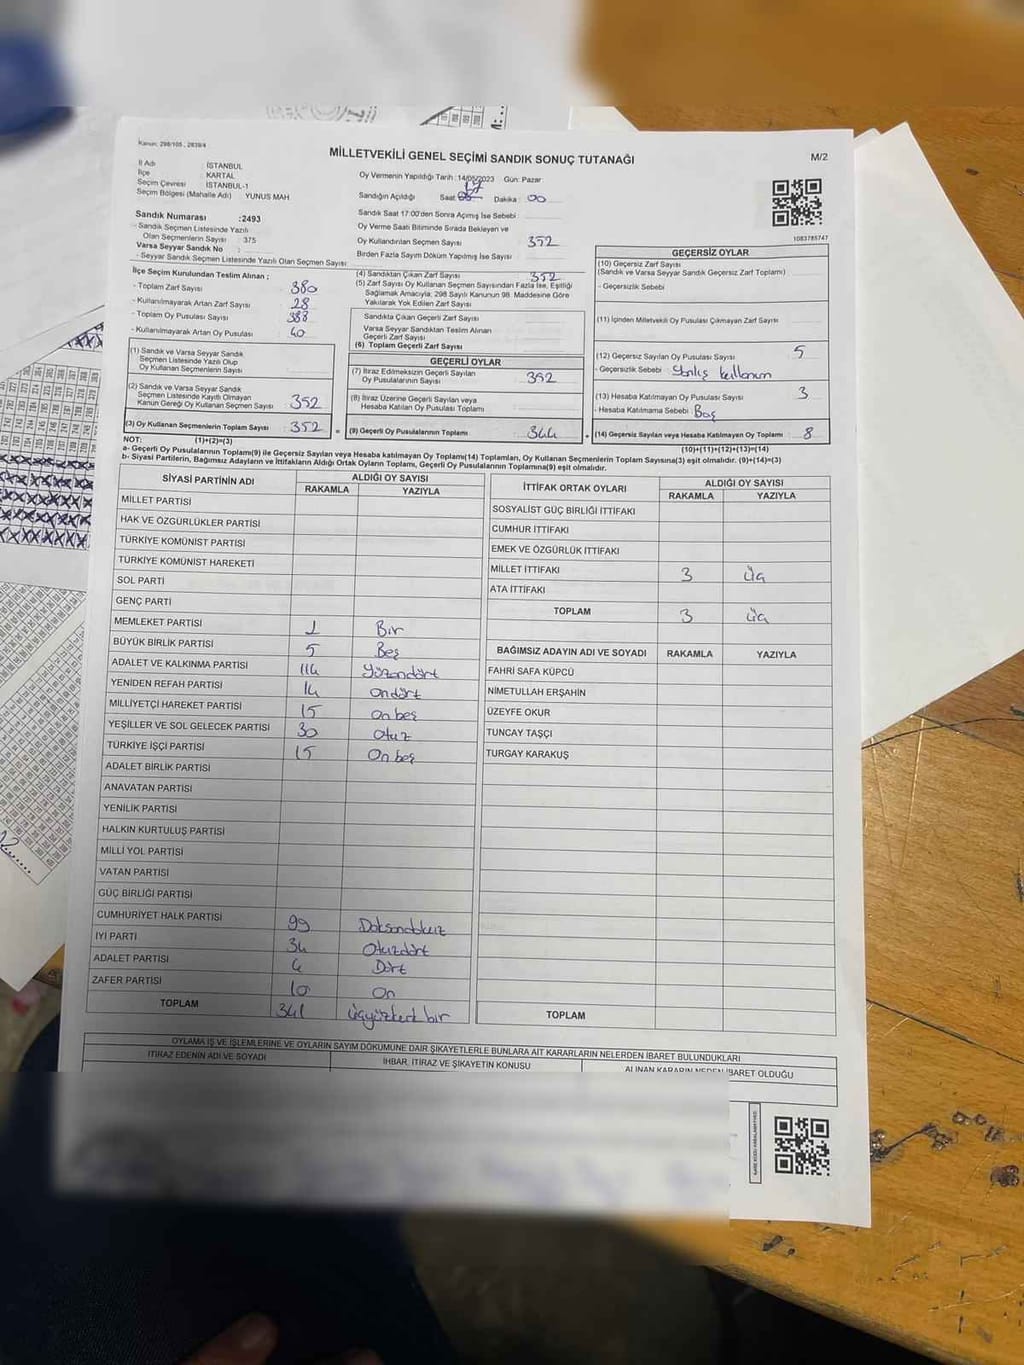 Kanun: 298/105, 2839/4
MİLLETVEKİLİ GENEL SEÇİMİ SANDIK SONUÇ TUTANAĞI
M/2
İl Adı : İSTANBUL
İlçe : KARTAL
Seçim Çevresi : İSTANBUL-1
Seçim Bölgesi (Mahalle Adı) YUNUS MAH.
Sandık Numarası :2493
Sandık Seçmen Listesinde Yazılı
Olan Seçmenlerin Sayısı : 375
Varsa Seyyar Sandık No :
- Seyyar Sandık Seçmen Listesinde Yazılı Olan Seçmen Sayısı:
Oy Vermenin Yapıldığı Tarih : 14/05/2023 Gün: Pazar
Sandığın Açıldığı Saat: 17 Dakika : 00
Sandık Saat 17:00'den Sonra Açımış İse Sebebi :
Oy Verme Saati Bitiminde Sırada Bekleyen ve
Oy Kullandırılan Seçmen Sayısı : 352
Birden Fazla Sayım Döküm Yapılmış İse Sayısı :
1083785747
İlçe Seçim Kurulundan Teslim Alınan ;
- Toplam Zarf Sayısı : 380
- Kullanılmayarak Artan Zarf Sayısı : 28
- Toplam Oy Pusulası Sayısı : 388
- Kullanılmayarak Artan Oy Pusulası : 40
(1) Sandık ve Varsa Seyyar Sandık
Seçmen Listesinde Yazılı Olup
Oy Kullanan Seçmen Sayısı :
(2) Sandık ve Varsa Seyyar Sandık
Seçmen Listesinde Kayıtlı Olmayan
Kanun Gereği Oy Kullanan Seçmen Sayısı : 352
(3) Oy Kullanan Seçmenlerin Toplam Sayısı : 352
(4) Sandıktan Çıkan Zarf Sayısı : 352
(5) Zarf Sayısı Oy Kullanan Seçmen Sayısından Fazla İse, Eşitliği
Sağlamak Amacıyla; 298 Sayılı Kanunun 98. Maddesine Göre
Yakılarak Yok Edilen Zarf Sayısı :
Sandıkta Çıkan Geçerli Zarf Sayısı :
Varsa Seyyar Sandıktan Teslim Alınan
Geçerli Zarf Sayısı :
(6) Toplam Geçerli Zarf Sayısı :
GEÇERLİ OYLAR
(7) İtiraz Edilmeksizin Geçerli Sayılan
Oy Pusulalarının Sayısı : 352
(8) İtiraz Üzerine Geçerli Sayılan veya
Hesaba Katılan Oy Pusulası Toplamı :
= (9) Geçerli Oy Pusulalarının Toplamı : 344
GEÇERSİZ OYLAR
(10) Geçersiz Zarf Sayısı
(Sandık ve Varsa Seyyar Sandık Geçersiz Zarf Toplamı) :
- Geçersizlik Sebebi :
(11) İçinden Milletvekili Oy Pusulası Çıkmayan Zarf Sayısı :
(12) Geçersiz Sayılan Oy Pusulası Sayısı : 5
- Geçersizlik Sebebi : Yanlış kullanım
(13) Hesaba Katılmayan Oy Pusulası Sayısı : 3
- Hesaba Katılmama Sebebi : Boş
+ (14) Geçersiz Sayılan veya Hesaba Katılmayan Oy Toplamı : 8
NOT: (1)+(2)=(3)
(10)+(11)+(12)+(13)=(14)
a- Geçerli Oy Pusulalarının Toplamı(9) ile Geçersiz Sayılan veya Hesaba katılmayan Oy Toplamı(14) Toplamları, Oy Kullanan Seçmenlerin Toplam Sayısına(3) eşit olmalıdır. (9)+(14)=(3)
b- Siyasi Partilerin, Bağımsız Adayların ve İttifakların Aldığı Ortak Oyların Toplamı, Geçerli Oy Pusulalarının Toplamına(9) eşit olmalıdır.
SİYASİ PARTİNİN ADI
ALDIĞI OY SAYISI
RAKAMLA YAZIYLA
MİLLET PARTİSİ
HAK VE ÖZGÜRLÜKLER PARTİSİ
TÜRKİYE KOMÜNİST PARTİSİ
TÜRKİYE KOMÜNİST HAREKETİ
SOL PARTİ
GENÇ PARTİ
MEMLEKET PARTİSİ 1 Bir
BÜYÜK BİRLİK PARTİSİ 5 Beş
ADALET VE KALKINMA PARTİSİ 114 Yüzondört
YENİDEN REFAH PARTİSİ 14 Ondört
MİLLİYETÇİ HAREKET PARTİSİ 15 On beş
YEŞİLLER VE SOL GELECEK PARTİSİ 30 Otuz
TÜRKİYE İŞÇİ PARTİSİ 15 On beş
ADALET BİRLİK PARTİSİ
ANAVATAN PARTİSİ
YENİLİK PARTİSİ
HALKIN KURTULUŞ PARTİSİ
MİLLİ YOL PARTİSİ
VATAN PARTİSİ
GÜÇ BİRLİĞİ PARTİSİ
CUMHURİYET HALK PARTİSİ 99 Doksandokuz
İYİ PARTİ 34 Otuzdört
ADALET PARTİSİ 4 Dört
ZAFER PARTİSİ 10 On
TOPLAM 341 Üçyüzkırk bir
İTTİFAK ORTAK OYLARI
ALDIĞI OY SAYISI
RAKAMLA YAZIYLA
SOSYALİST GÜÇ BİRLİĞİ İTTİFAKI
CUMHUR İTTİFAKI
EMEK VE ÖZGÜRLÜK İTTİFAKI
MİLLET İTTİFAKI 3 Üç
ATA İTTİFAKI
TOPLAM 3 Üç
BAĞIMSIZ ADAYIN ADI VE SOYADI RAKAMLA YAZIYLA
FAHRİ SAFA KÜPCÜ
NİMETULLAH ERŞAHİN
ÜZEYFE OKUR
TUNCAY TAŞÇI
TURGAY KARAKUŞ
TOPLAM
OYLAMA İŞ VE İŞLEMLERİNE VE OYLARIN SAYIM DÖKÜMÜNE DAİR ŞİKAYETLERLE BUNLARA AİT KARARLARIN NELERDEN İBARET BULUNDUKLARI
İTİRAZ EDENİN ADI VE SOYADI
İHBAR, İTİRAZ VE ŞİKAYETİN KONUSU
ALINAN KARARIN NEDEN İBARET OLDUĞU